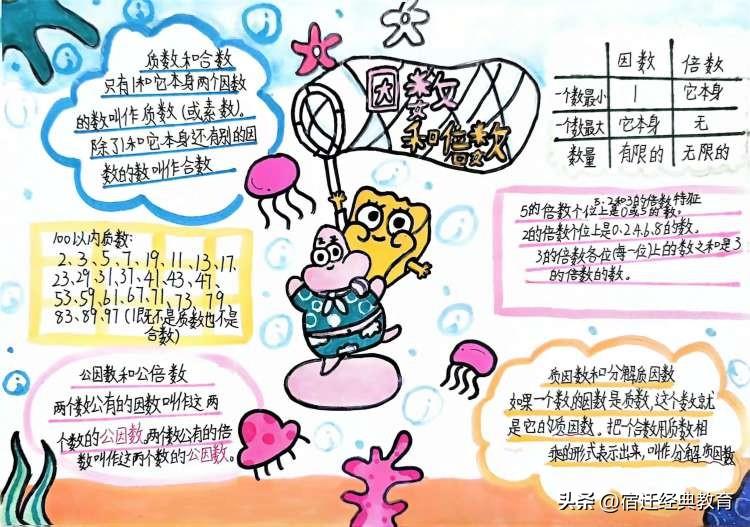 因数
和倍数
质数和合数
只有1和它本身两个因数
的数叫作质数(或素数)。
除了1和它本身还有别的因
数的数叫作合数
因数 倍数
一个数最小 1 它本身
一个数最大 它本身 无
数量 有限的 无限的
5.2和3的倍数特征
5的倍数个位上是0或5的数。
2的倍数个位上是0.2.4.6.8的数。
3的倍数各位(每一位)上的数之和是3
的倍数的数。
100以内质数:
2、3、5、7、19、11、13、17、
23、29、31、37、41、43、47、
53、59、61、67、71、73、79
83、89、97(1既不是质数也不是
合数)
公因数和公倍数
两个数公有的因数叫作这两
个数的公因数,两个数公有的倍
数叫作这两个数的公因数。
质因数和分解质因数
如果一个数的因数是质数,这个数就
是它的质因数。把一个合数用质数相
乘的形式表示出来,叫作分解质因数
头条 @宿迁经典教育